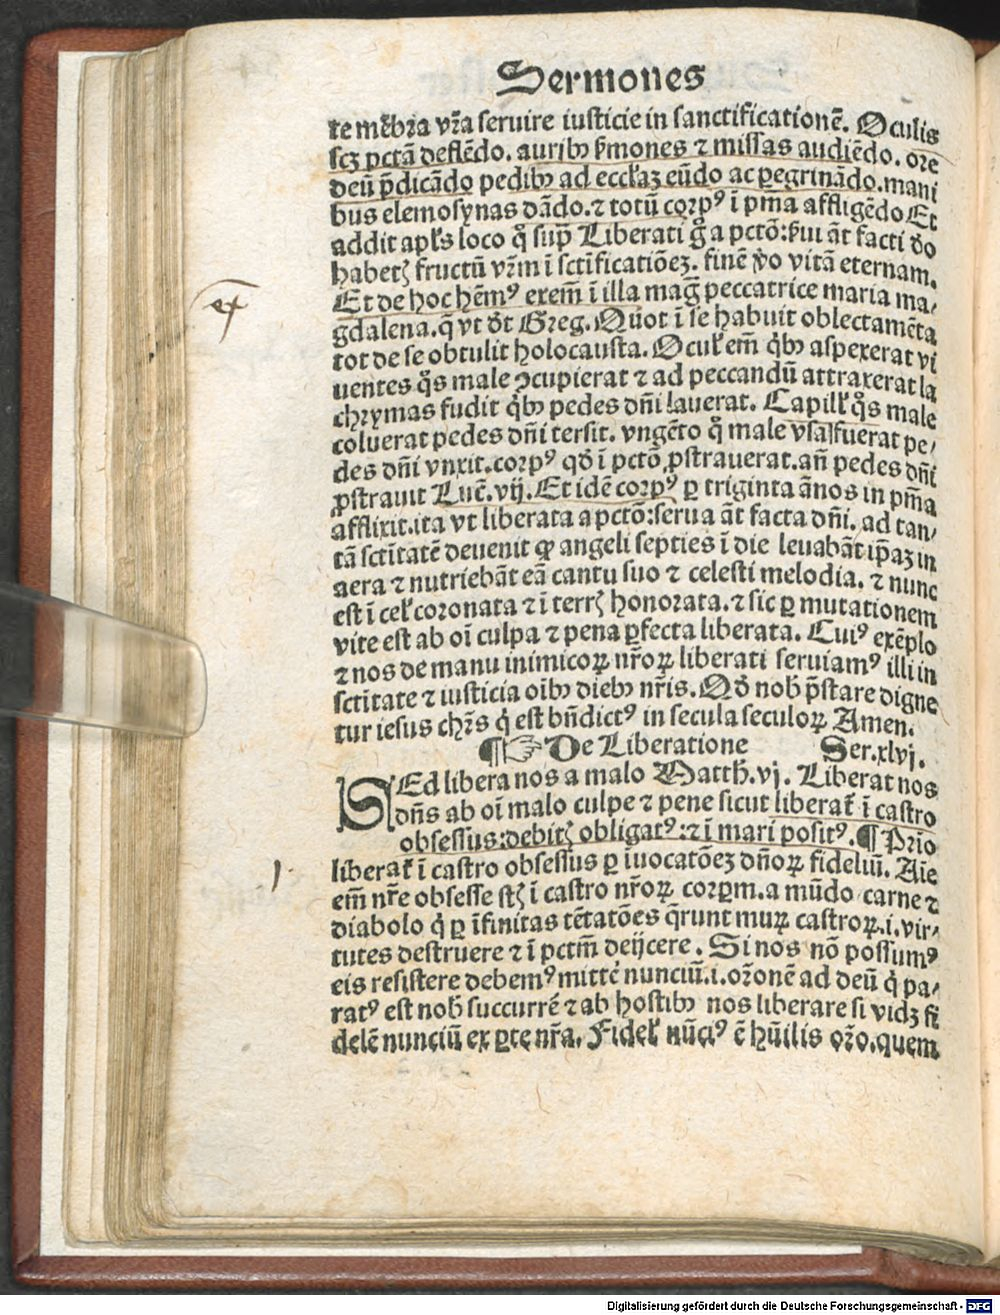 Sermones
te mēbra vr̄a seruire iusticie in sanctificationē. Oculis
scꝫ pctā deflēdo. auribꝰ ẜmones ⁊ missas audiēdo. ore
deū p̄dicādo pedibꝰ ad eccƚaꝫ eūdo ac ꝑegrinādo. mani
bus elemosynas dādo. ⁊ totū corpꝰ ī pn̄ia affligēdo Et
addit apƚs loco q̊ sup̄ Liberati g̊ a pctō: ẜui āt facti deo
habetꝭ fructū vr̄m ī sctīficatiōeꝫ. finē v̊o vitā eternam.
Et de hoc hēmꝰ exem̄ ī illa maḡ peccatrice maria ma-
gdalena. q̄ vt dt̄ Greg. Quot ī se habuit oblectamēta
tot de se obtulit holocausta. Ocuƚ em̄ qͥbꝰ aspexerat vi
uentes q̊s male ꝯcupierat ⁊ ad peccandū attraxerat la
chrymas fudit qͥbꝰ pedes dn̄i lauerat. Capilƚ q̊s male
coluerat pedes dn̄i tersit. vngēto q̊ male vsa fuerat pe-
des dn̄i vnxit. corpꝰ qd̄ ī pctō ꝓstrauerat. an̄ pedes dn̄i
ꝓstrauit Luc̄. vij. Et idē corpꝰ ꝑ triginta ānos in pn̄ia
afflixit. ita vt liberata a pctō: serua āt facta dn̄i. ad tan-
tā sctītatē deuenit ꝙ angeli septies ī die leuabāt ip̄aꝫ in
aera ⁊ nutriebāt eā cantu suo ⁊ celesti melodia. ⁊ nunc
est ī ceƚ coronata ⁊ ī terrꝭ honorata. ⁊ sic ꝑ mutationem
vite est ab oī culpa ⁊ pena ꝑfecta liberata. Cuiꝰ exēplo
⁊ nos de manu inimicoꝝ nr̄oꝝ liberati seruiamꝰ illi in
sctītate ⁊ iusticia oībꝰ diebꝰ nr̄is. Qd̄ nob̄ p̄stare digne
tur iesus chr̄s qͥ est bn̄dictꝰ in secula seculoꝝ Amen.
¶ ☞ De Liberatione Ser. xlvj.
SEd libera nos a malo Matth̄. vj. Liberat nos
dn̄s ab oī malo culpe ⁊ pene sicut liberat̄ ī castro
obsessus: debitꝭ obligatꝰ: ⁊ ī mari positꝰ. ¶ Prīo
liberat̄ ī castro obsessus ꝑ iuocatōeꝫ dn̄oꝝ fideliū. Aīe
em̄ nr̄e obsesse st̄ ī castro nr̄oꝝ corpꝝm. a mūdo carne ⁊
diabolo qͥ ꝑ īfinitas tētatōes q̄runt muꝝ castroꝝ. i. vir-
tutes destruere ⁊ ī pctm̄ deijcere. Si nos nō possumꝰ
eis resistere debemꝰ mittē nunciū. i. or̄onē ad deū qͥ pa-
ratꝰ est nob̄ succurrē ⁊ ab hostibꝰ nos liberare si vidꝫ fi
delē nunciū ex ꝑte nr̄a. Fideƚ nūciꝰ ē hūilis or̄o. quem
ex
1.
Digitalisierung gefördert durch die Deutsche Forschungsgemeinschaft - DFG